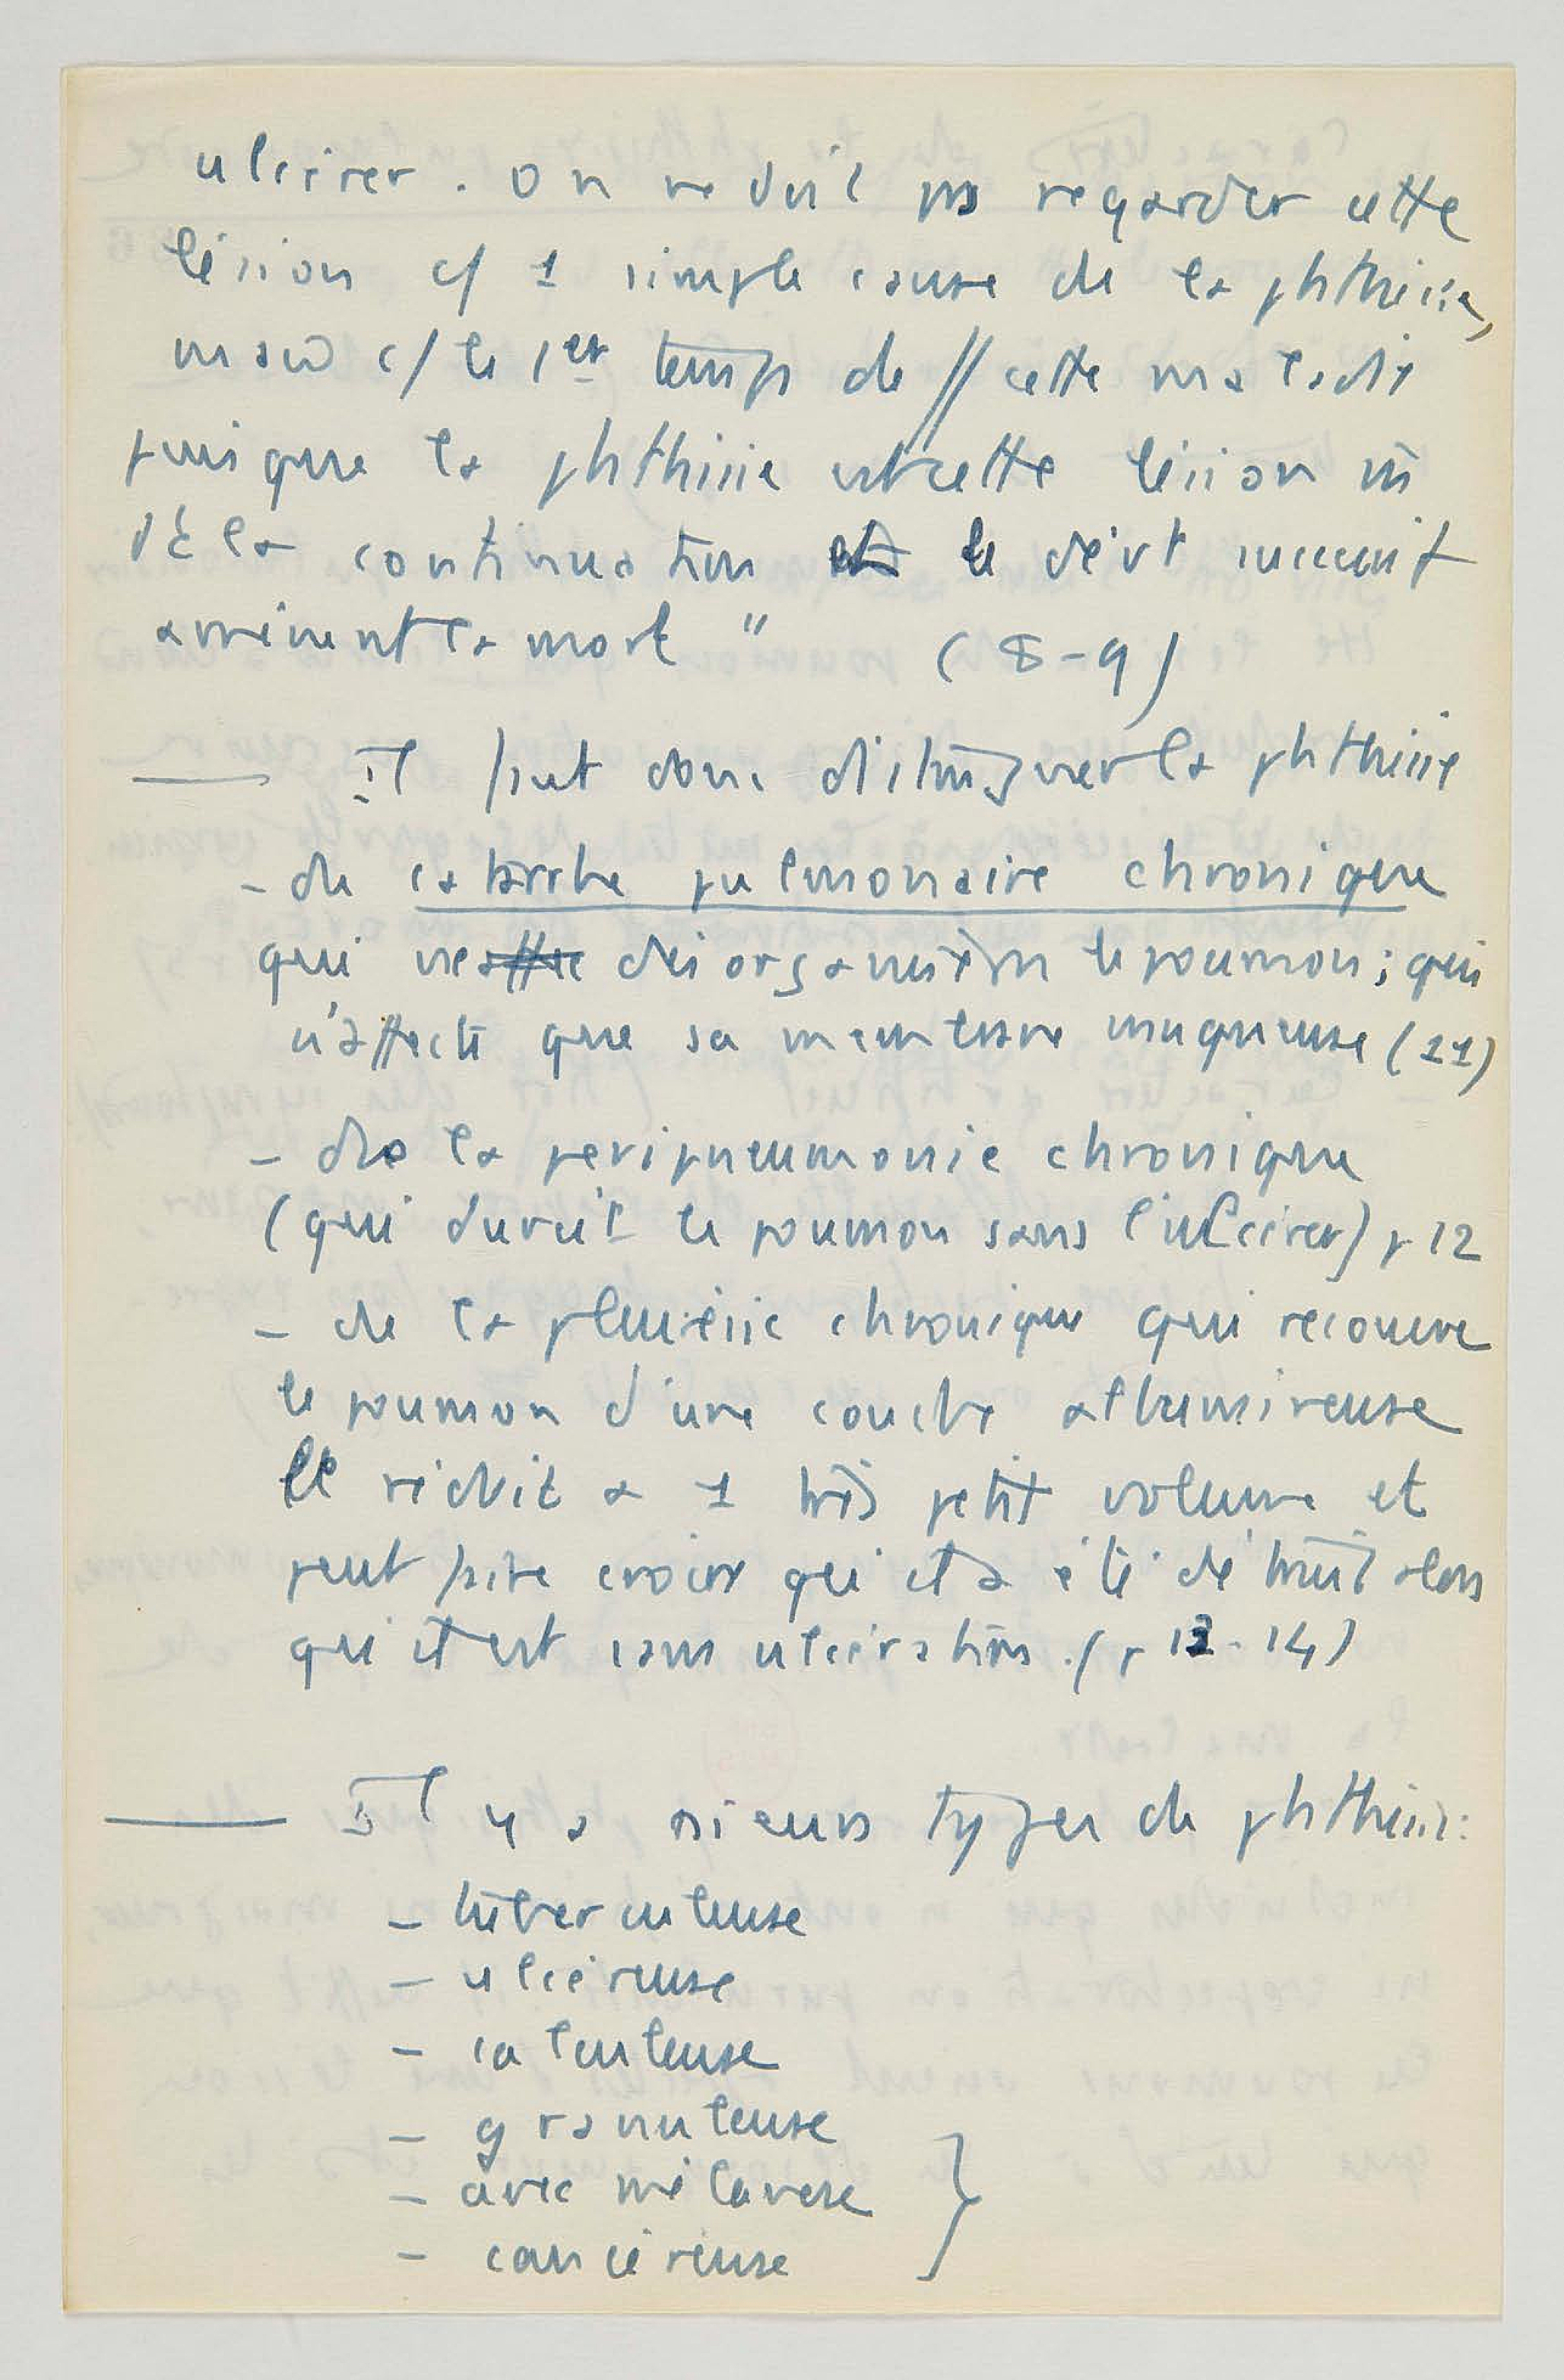 ulcérer. On ne doit pas regarder cette
lésion c/ 1 simple cause de la phthisie,
mais c/ le 1er temps de // cette maladie
puisque la phthisie est cette lésion m̂
dt la continuation et le dévt successif
amènent la mort" (8-9)
— Il faut donc distinguer la phthisie
- du catarrhe pulmonaire chronique
qui ne désorganise le poumon; qui
n'affecte que sa membrane muqueuse (11)
- de la peripneumonie chronique
(qui durcit le poumon sans l'ulcérer) p 12
- de la pleurésie chronique qui recouvre
le poumon d'une couche albumineuse
le réduit a 1 très petit volume et
peut faire croire qu'il a été détruit alors
qu'il est sans ulcération. (p 13-14)
— Il y a psieurs types de phthisie:
- tuberculeuse
- ulcéreuse
- calculeuse
- granuleuse
- avec mélanose
- cancéreuse }